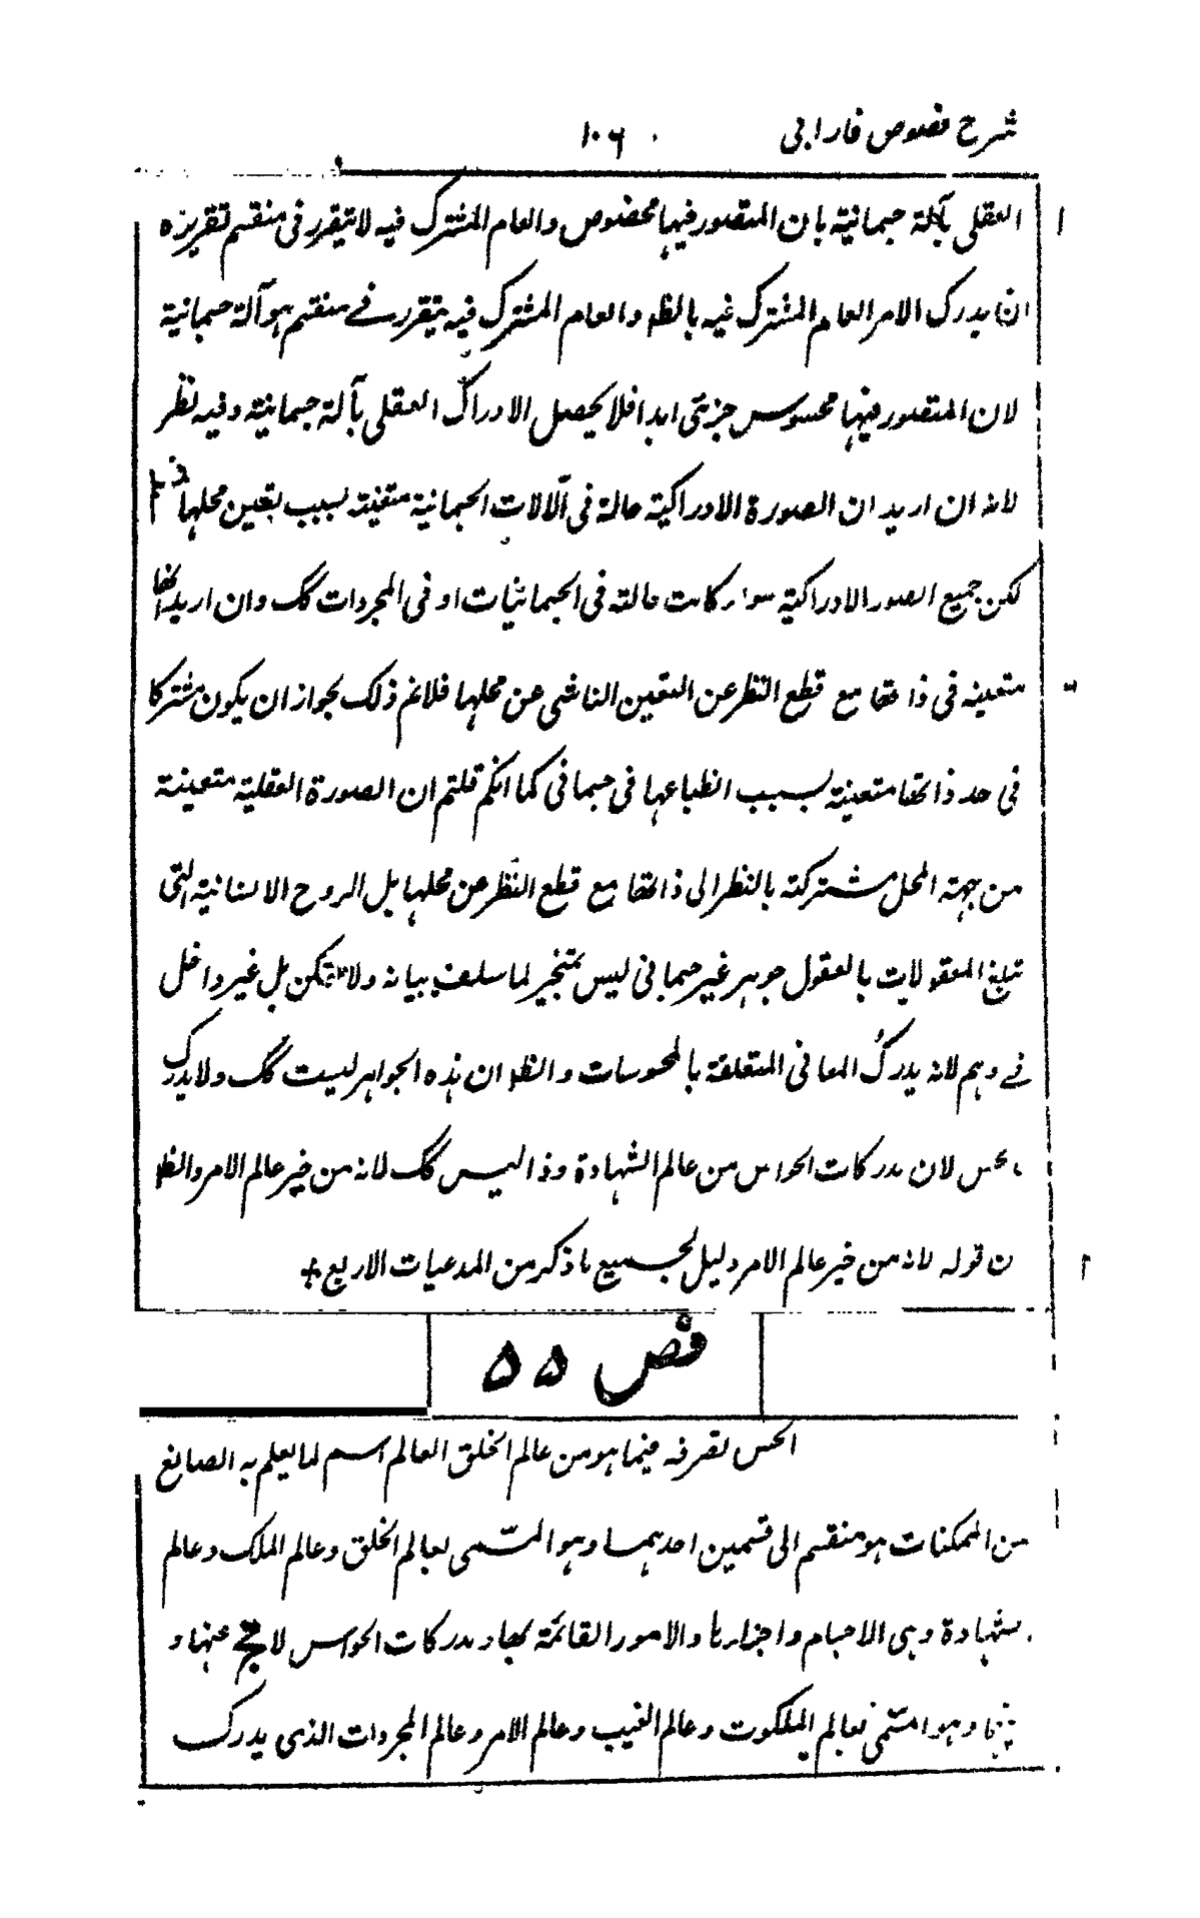 شرح فصوص فارابی ١٠٦
العقلی بآلة جسمانیة بان المتصور فیها مخصوص والعام المشترک فیه لا یتقرر فی منقسم تقریره
ان یدرک الامر العام المشترک فیه بالظ والعام المشترک فیه یتقرر فے منقسم هو آلة جسمانیة
لان المتصور فیها محسوس جزئی ابدا فلا یحصل الادراک العقلی بآلة جسمانیة وفیه نظر
لانه ان ارید ان الصورة الادراکیة حالة فی الآلات الجسمانیة متعینة بسبب تعین محلها فم
لکن جمیع الصور الادراکیة سواء کانت حالة فی الجسمانیات او فی المجردات کک وان ارید انها
متعینه فی ذاتها مع قطع النظر عن التعین الناشی عن محلها فلا نم ذلک لجواز ان یکون مشترکا
فی حد ذاتها متعینة بسبب انطباعها فی جسمانی کما انکم قلتم ان الصورة العقلیة متعینة
من جهة المحل مشترکة بالنظر الی ذاتها مع قطع النظر عن محلها بل الروح الانسانیة التی
تبلغ المعقولات بالعقول جوهر غیر جسمانی لیس بمتحیز لما سلف بیانه ولا متمکن بل غیر داخل
فے وهم لانه یدرک المعانی المتعلقة بالمحسوسات والظ ان هذه الجواهر لیست کک ولا یدرک
بحس لان مدرکات الحواس من عالم الشهادة وذا لیس کک لانه من حیز عالم الامر والظ
ن قوله لانه من حیز عالم الامر دلیل لجمیع ما ذکر من المدعیات الاربع
فص ۵۵
الحس تصرفه فیما هو من عالم الخلق العالم اسم لما یعلم به الصانع
من الممکنات هو منقسم الی قسمین احدهما وهو المسمی بعالم الخلق وعالم الملک وعالم
شهادة وهی الاجسام واجزاءها والامور القائمة بها ومدرکات الحواس لا تخرج عنها و
وهو امسمی بعالم الملکوت وعالم الغیب وعالم الامر وعالم المجردات الذی یدرک